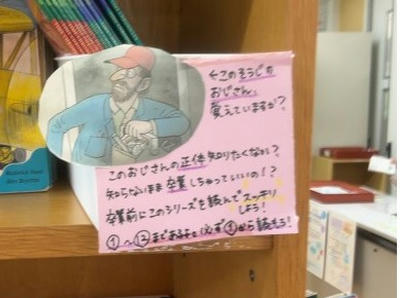 ←このそうじの
おじさん、
覚えていますか?
このおじさんの正体知りたくない?
知らないまま卒業しちゃっていいの!?
卒業前にこのシリーズを読んでスッキリ
しよう!
①~⑬まであるよ。必ず①から読もう!